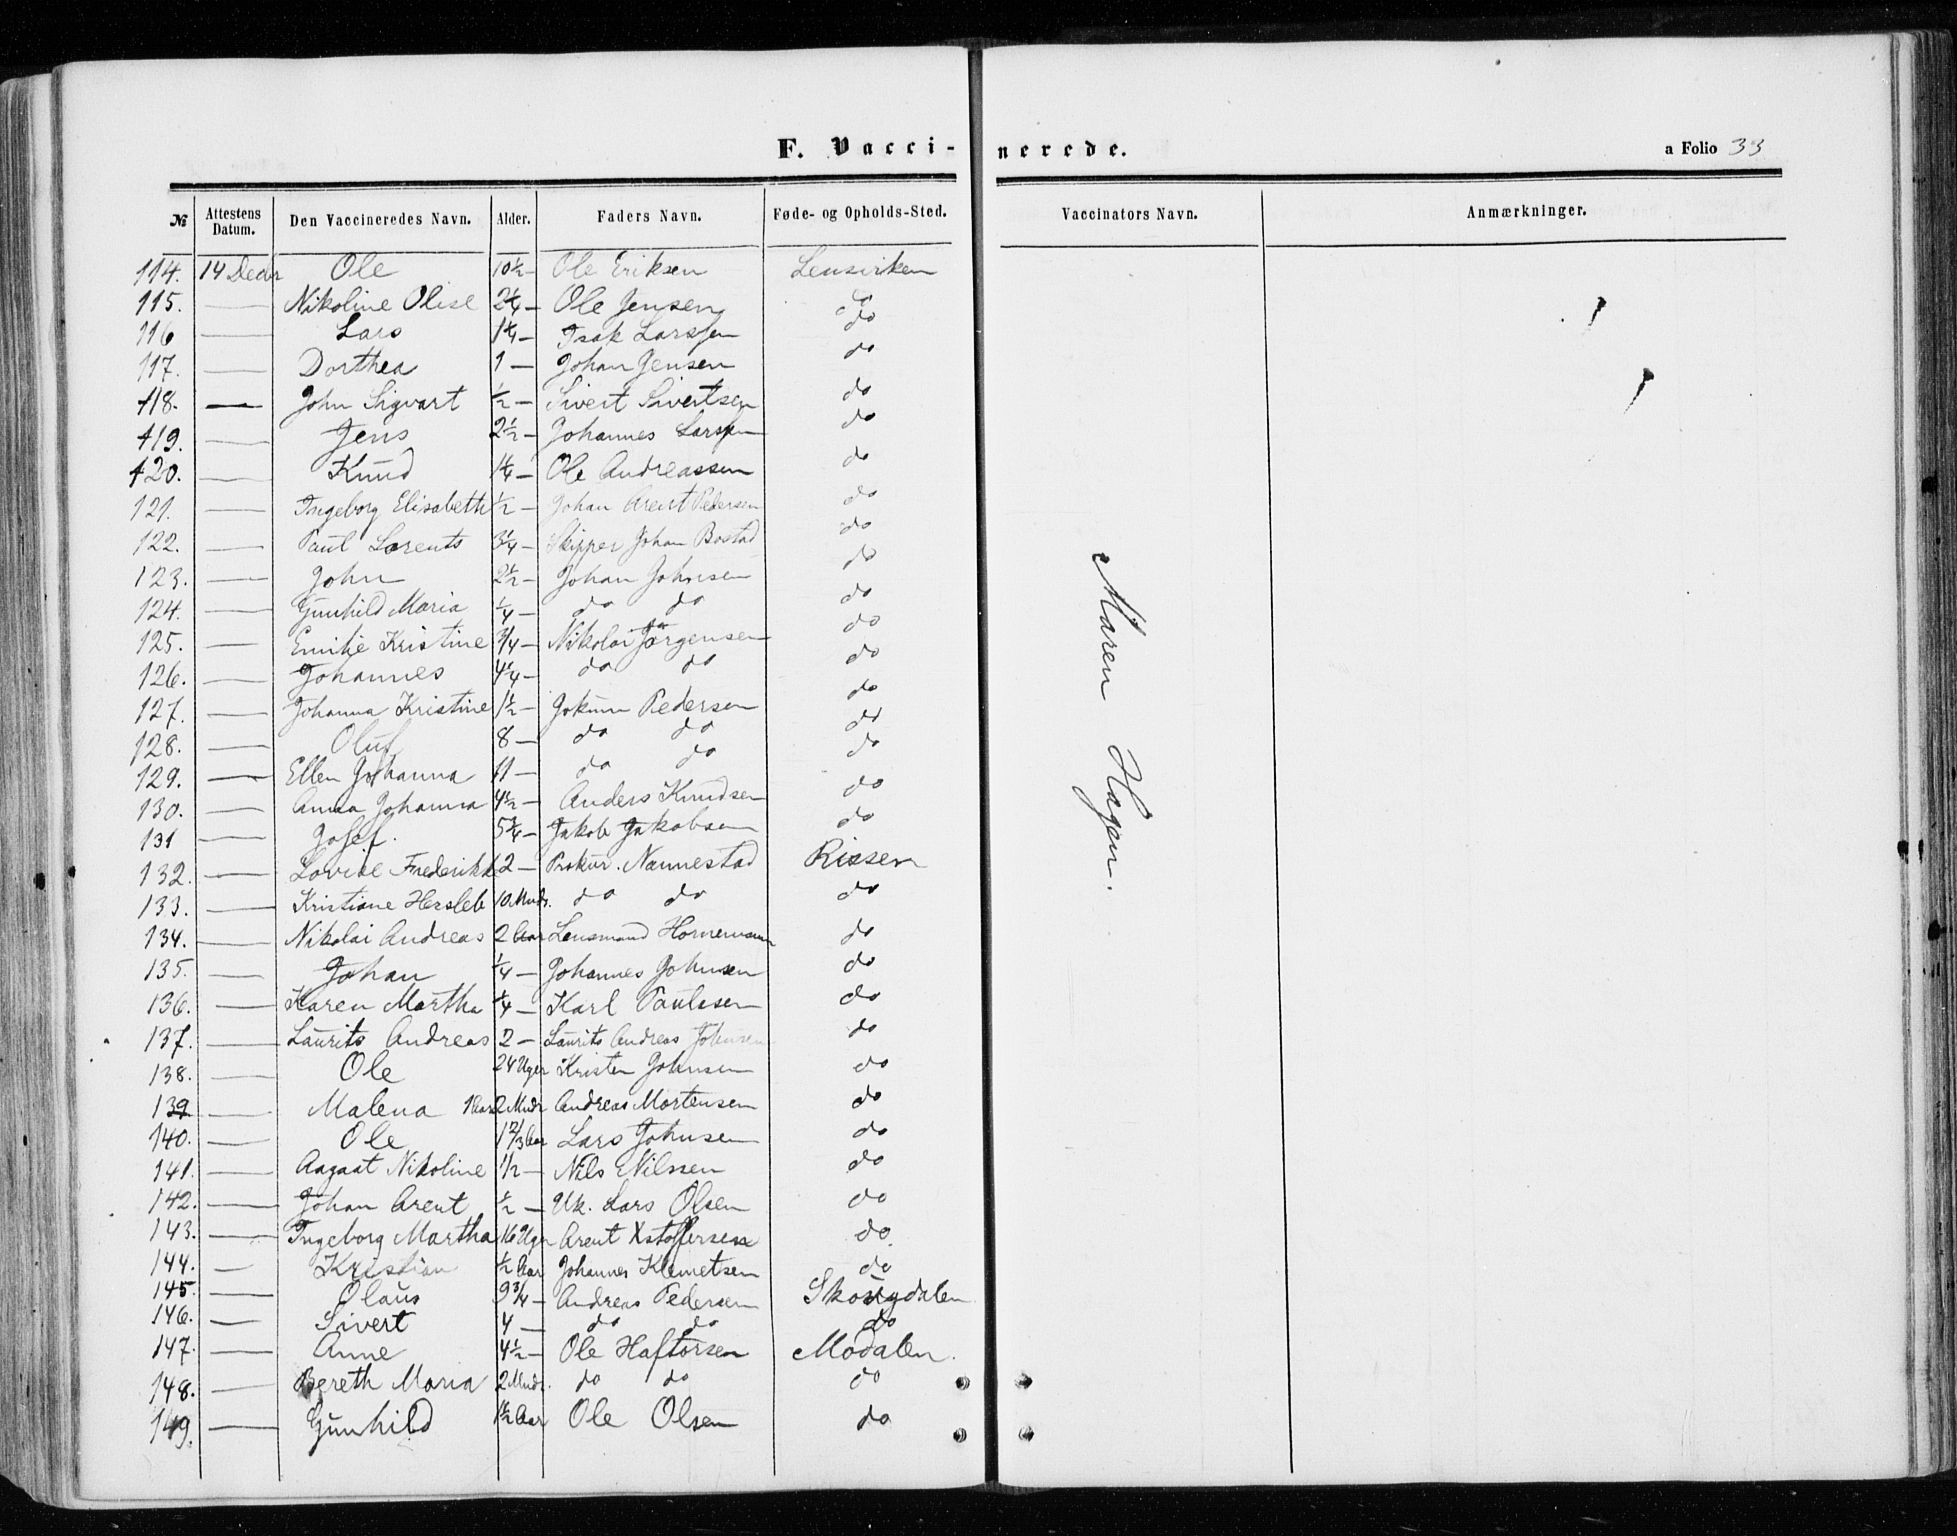 F. Vacci-nerede.
a Folio 33
№ Attestens Datum. Den Vaccineredes Navn. Alder. Faders Navn. Føde- og Opholds-Sted. Vaccinators Navn. Anmærkninger.
114. 14 Decbr Ole 10½ — Ole Eriksen Lensvirken
115. — Nikoline Olise 2¼ — Ole Jensen do
116 — Lars 1¼ — Isak Larssen do
117. — Dorthea 1 — Johan Jensen do
118. — John Sigvart ½ — Sivert Sivertsen do
119. — Jens 2½ — Johannes Larssen do
120. — Knud 1¼ — Ole Andreassen do
121. — Ingeborg Elisabeth ½ — Johan Arent Pedersen do
122. — Paul Lorents 3¼ — Skipper Johan Bostad do
123. — John 2½ — Johan Johnsen do
124. — Gunhild Maria ¼ — do do do
125. — Emilie Kristine ¾ — Nikolai Jørgensen do
126. — Johannes 4¼ — do do do
127. — Johanna Kristine 1½ — Jokum Pedersen do
128. — Oluf 8 — do do do
129. — Ellen Johanna 11 — do do do
130. — Anna Johanna 4½ — Anders Knudsen do
131 — Josef. 5¼ — Jakob Jakobsen do
132. — Lovise Frederikke 2 — Prokur. Nannestad Rissen
133. — Kristiane Hersleb 10 Mndr. do do do
134. — Nikolai Andreas 2 Aar Lensmand Hornemann do
135. — Johan ¼ — Johannes Johnsen do
136. — Karen Martha ¼ — Karl Paulssen do
137. — Laurits Andreas 2 — Laurits Andreas Johnsen do
138. — Ole 24 Uger Kristen Johnsen do
139 — Malena 1 Aar 2 Mndr Andreas Mortensen do
140. — Ole 1 2/3 Aar Lars Johnsen do
141. — Aagaat Nikoline ½ — Nils Nilssen do
142. — Johan Arent ½ — Uk. Lars Olsen do
143. — Ingeborg Martha 16 Uger Arent Xstoffersen do
144. — Kristian ½ Aar Johannes Klemetsen do
145. — Olaus 9¾ — Andreas Pedersen Skaugdalen
146. — Sivert 4 — do do do
147. — Anne 4½ — Ole Haftorsen Modalen.
148. — Bereth Maria 2 Mndr. do do do
149. — Gunhild 1½ Aar Ole Olsen do
Maren Hagen.